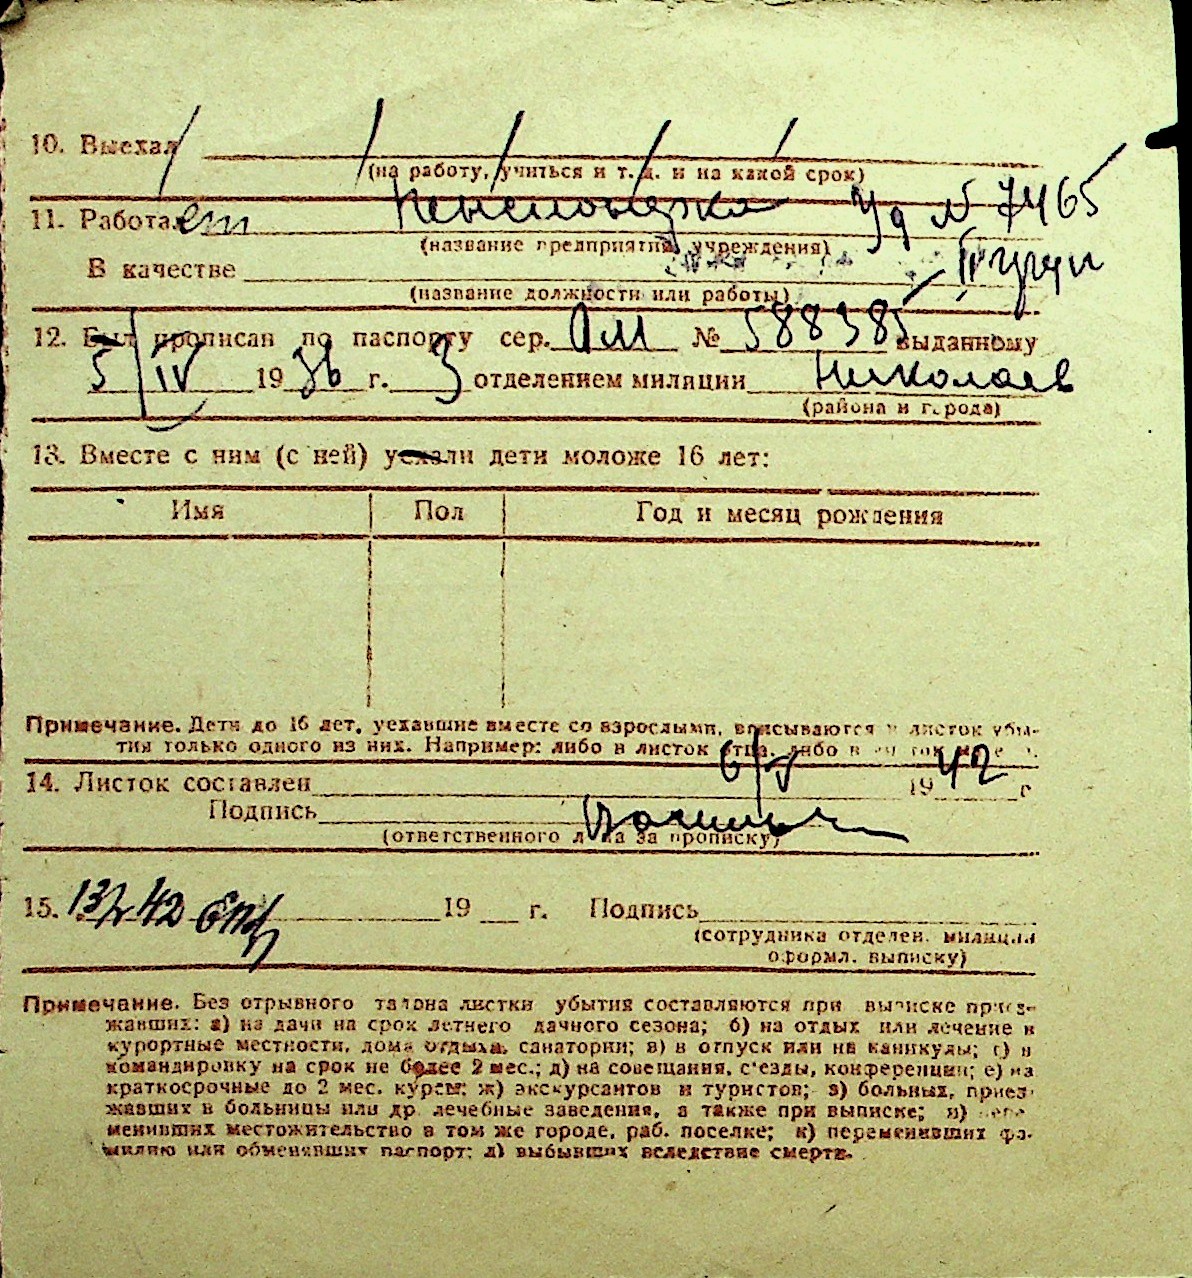 10. Выехал
(на работу, учиться и т. д. и на какой срок)
11. Работает Пенсионерка Уд № 7465
(название предприятия, учреждения)
В качестве II групп
(название должности или работы)
12. Был прописан по паспорту сер. № 588385 выданному
5/IV 1936 г. 3 отделением милиции Николаев
(района и города)
13. Вместе с ним (с ней) уехали дети моложе 16 лет:
Имя Пол Год и месяц рождения
Примечание. Дети до 16 лет, уехавшие вместе со взрослыми, вписываются в листок убы-
тия только одного из них. Например: либо в листок отца, либо в
14. Листок составлен 6/V 1942 г
Подпись
(ответственного лица за прописку)
15. 42 19 г. Подпись
(сотрудника отделен. милиции
оформл. выписку)
Примечание. Без отрывного талона листки убытия составляются при выписке приез-
жавших: а) на дачи на срок летнего дачного сезона; б) на отдых или лечение в
курортные местности, дома отдыха, санатории; в) в отпуск или на каникулы; г) в
командировку на срок не более 2 мес.; д) на совещания, с'езды, конференции; е) на
краткосрочные до 2 мес. курсы; ж) экскурсантов и туристов; з) больных, приез-
жавших в больницы или др. лечебные заведения, а также при выписке; и) пере-
менивших местожительство в том же городе, раб. поселке; к) переменивших фа-
милию или обменявших паспорт; л) выбывших вследствие смерти.